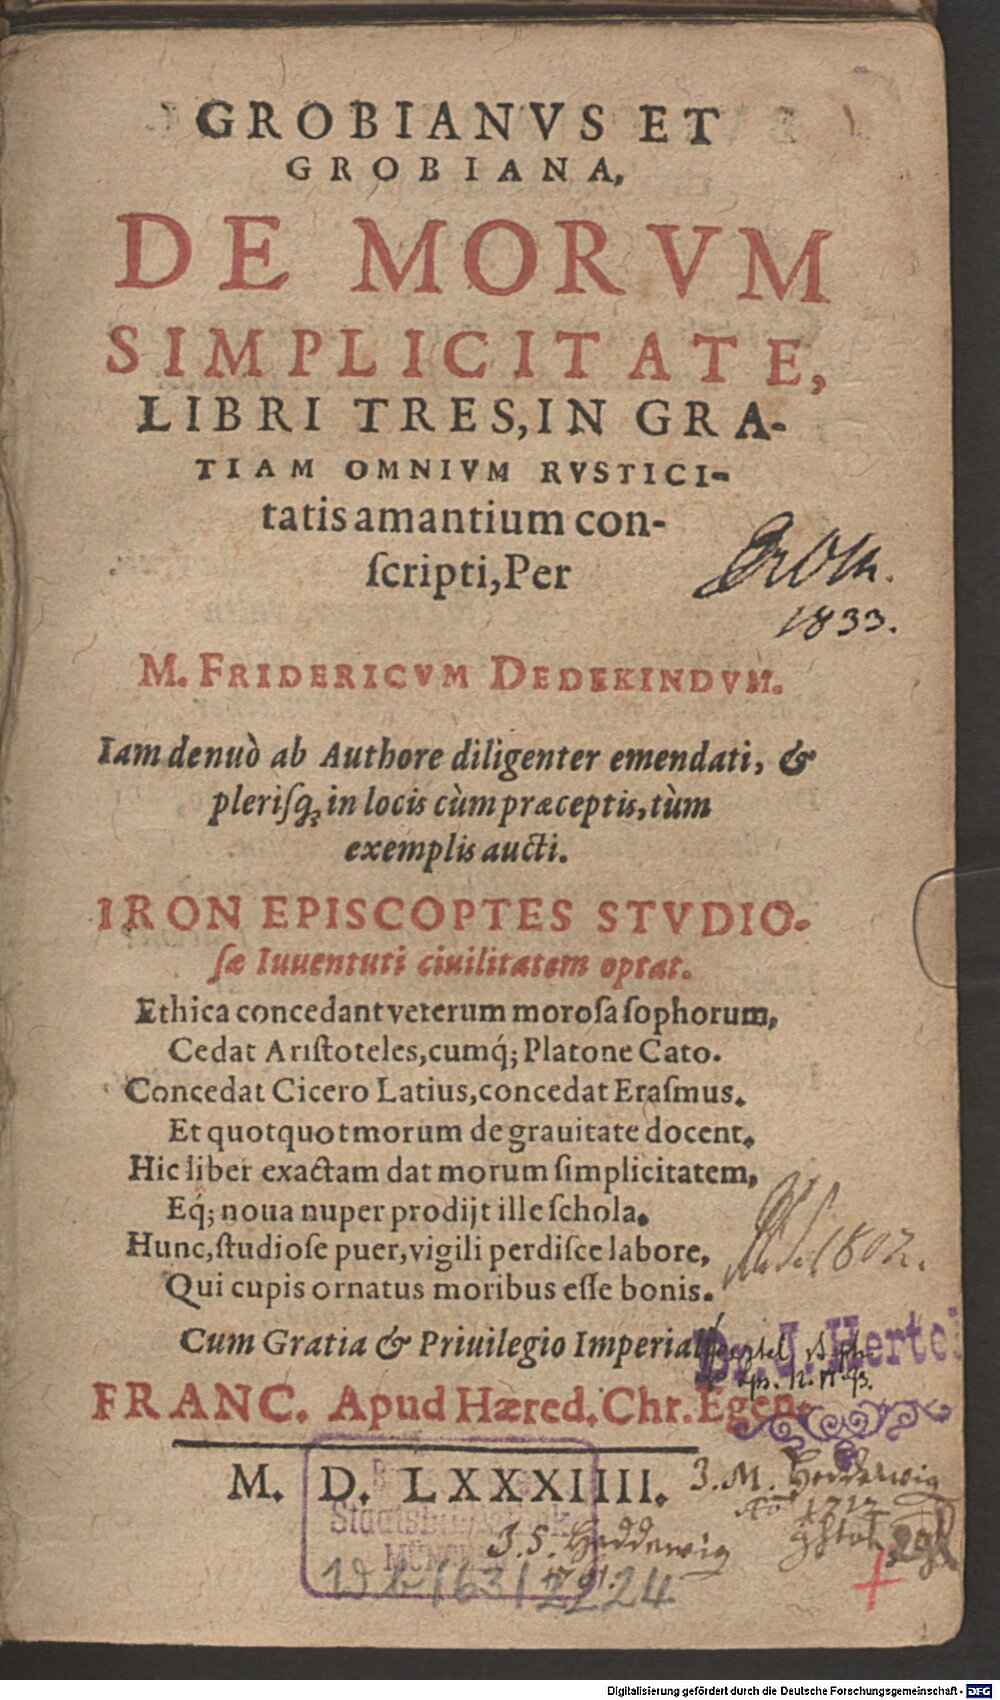 GROBIANVS ET
GROBIANA,
DE MORVM
SIMPLICITATE,
LIBRI TRES, IN GRA-
TIAM OMNIVM RVSTICI-
tatis amantium con-
ſcripti, Per
1833.
M. FRIDERICVM DEDEKINDVM.
Iam denuò ab Authore diligenter emendati, &
pleriſq; in locis cùm præceptis, tùm
exemplis aucti.
IRON EPISCOPTES STVDIO-
ſæ Iuuentuti ciuilitatem optat.
Ethica concedant veterum moroſa ſophorum,
Cedat Ariſtoteles, cumq́; Platone Cato.
Concedat Cicero Latius, concedat Eraſmus.
Et quotquot morum de grauitate docent.
Hic liber exactam dat morum ſimplicitatem,
Eq́; noua nuper prodijt ille ſchola.
Hunc, ſtudioſe puer, vigili perdiſce labore,
1802.
Qui cupis ornatus moribus eſſe bonis.
Cum Gratia & Priuilegio Imperiali
Dr. J. Hertel
FRANC. Apud Hæred. Chr. Egen.
M. D. LXXXIIII.
J. M. Hedderwig
Staatsbibliothek
MÜNCHEN
J. S. Hedderwig
Digitalisierung gefördert durch die Deutsche Forschungsgemeinschaft - DFG